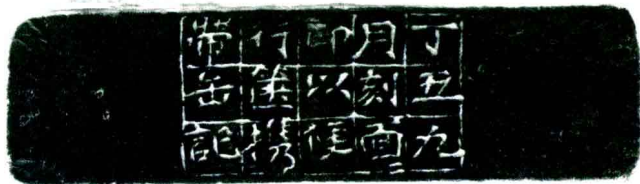 丁丑九
月刻面二
印以便
行篋携
帶缶記